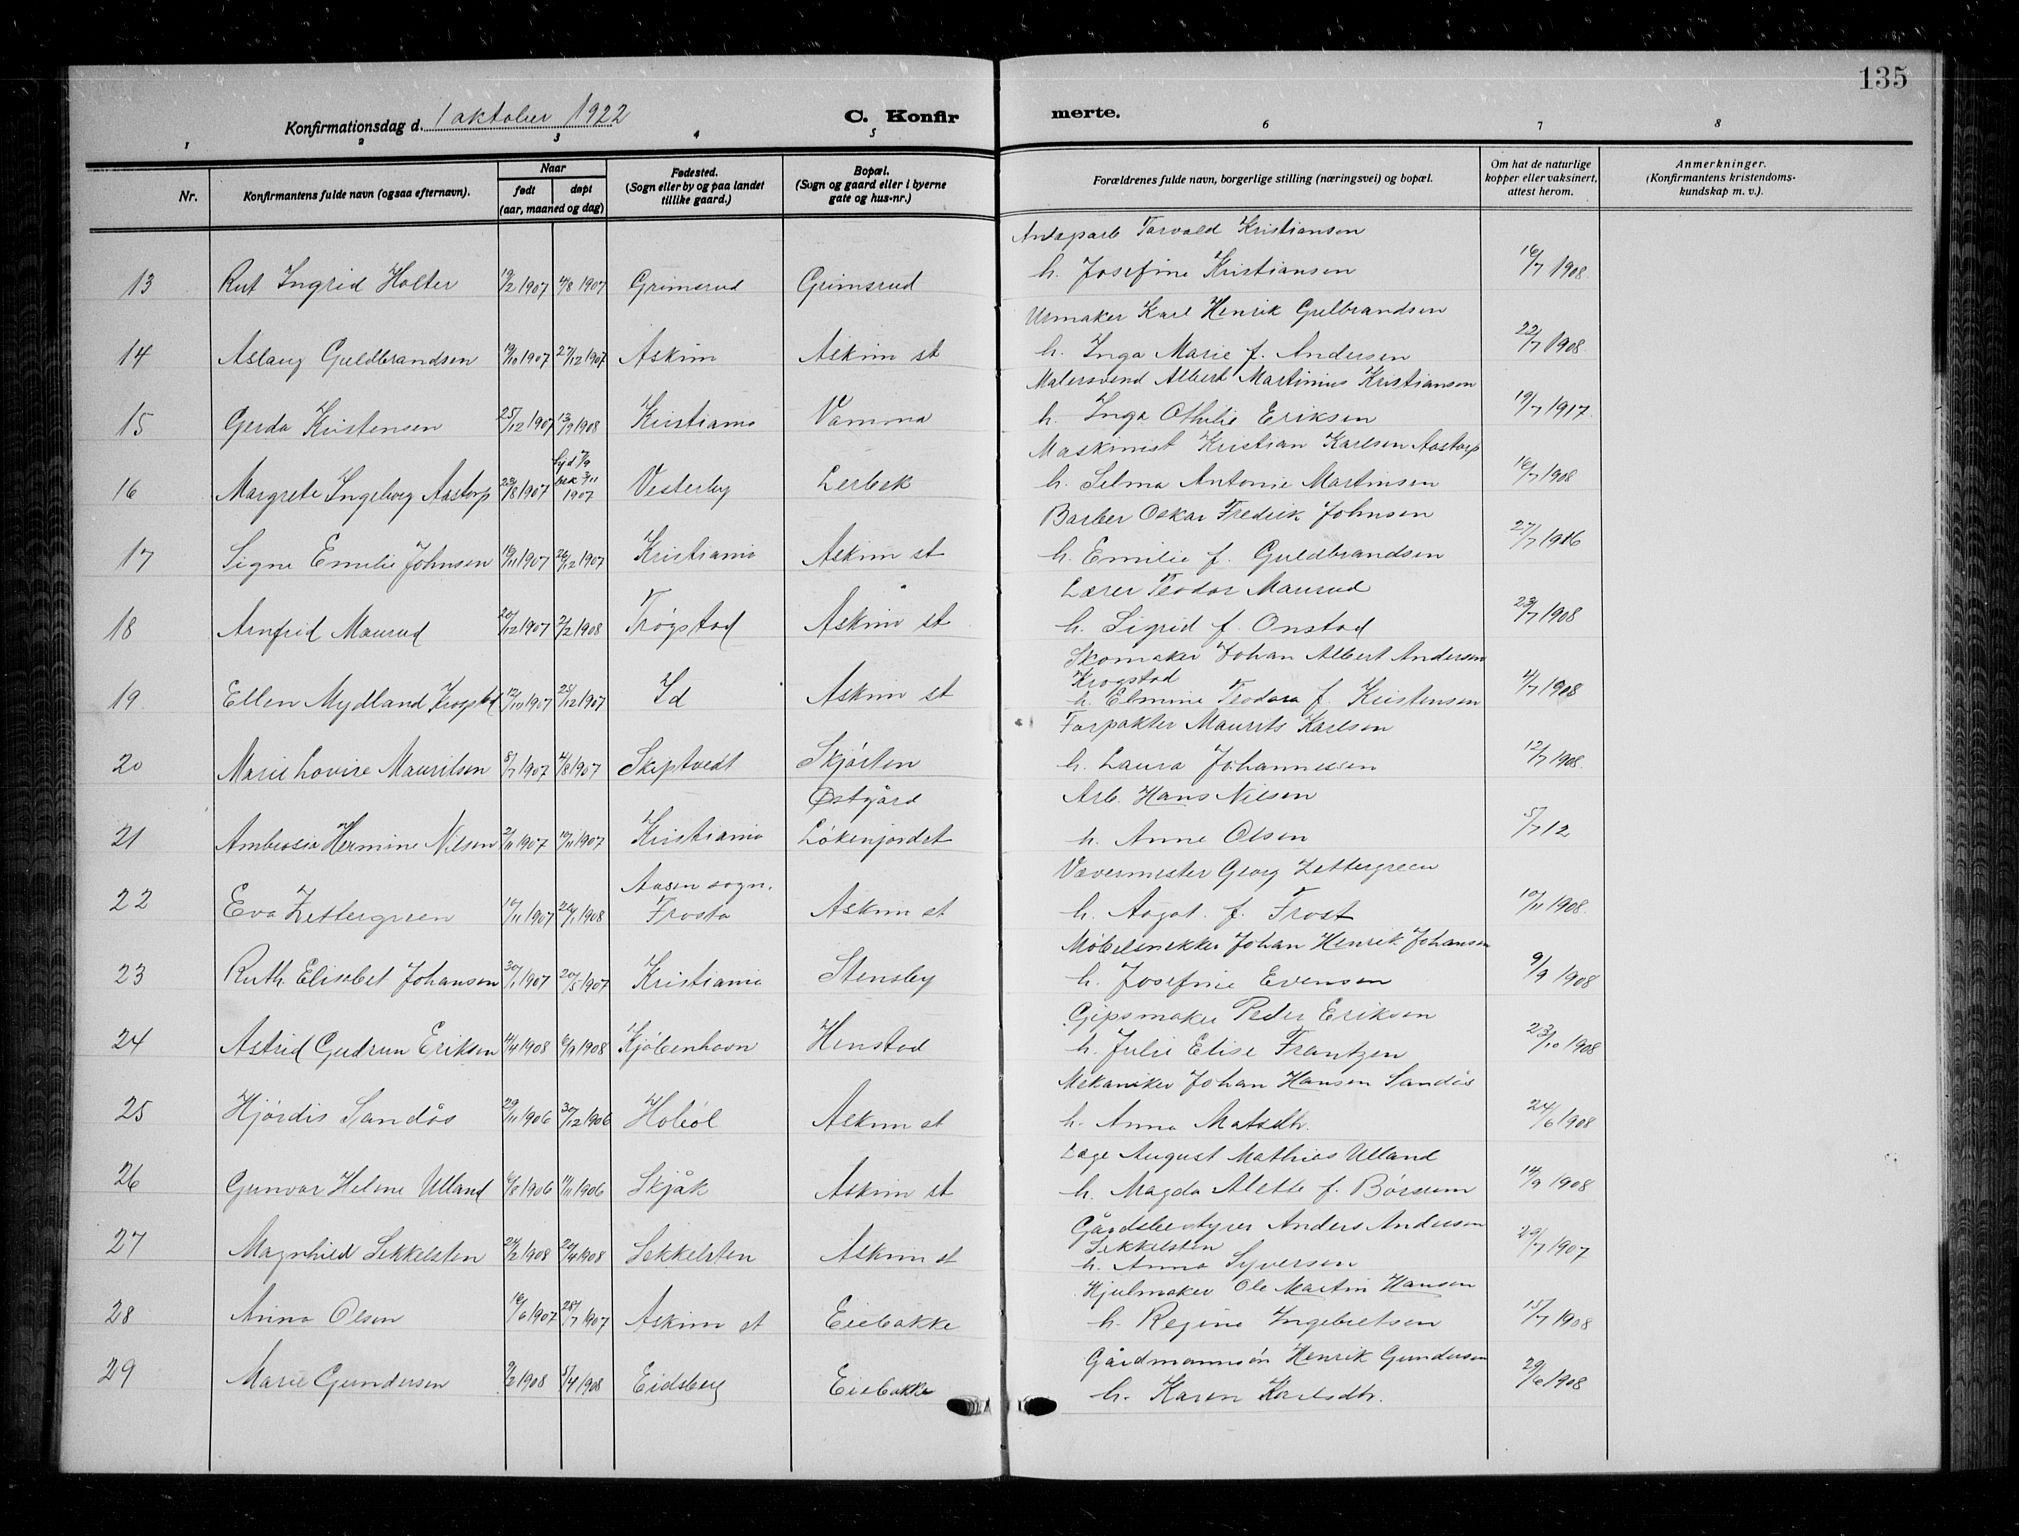 135
Konfirmationsdag d. 1 oktober 1922
C. Konfirmerte.
1 2 3 4 5 6 7 8
Nr. Konfirmantens fulde navn (ogsaa efternavn). Naar født døpt (aar, maaned og dag) Fødested. (Sogn eller by og paa landet tillike gaard.) Bopæl. (Sogn og gaard eller i byerne gate og hus-nr.) Forældrenes fulde navn, borgerlige stilling (næringsvei) og bopæl. Om hat de naturlige kopper eller vaksinert, attest herom. Anmerkninger. (Konfirmantens kristendomskundskap m. v.).
Torvald Kristiansen
13 Rut Ingrid Holter 19/2 1907 1907 Grimsrud Grimsrud h. Josefine Kristiansen 16/7 1908
Urmaker Karl Henrik Gulbrandsen
14 Aslaug Guldbrandsen 19/10 1907 27/12 1907 Askim Askim st h. Inga Marie f. Andersen 22/7 1908
Malersvend Albert Martinius Kristiansen
15 Gerda Kristensen 25/12 1907 13/9 1908 Kristiania Vamma h. Inga Othilie Eriksen 19/7 1917
Maskinist Kristian Karlsen Aastorp
16 Margrete Ingeborg Aastorp 23/8 1907 hjd 7/9 bek 3/11 1907 Vesterby Lerbek h. Selma Antonie Martinsen 16/7 1908
Barber Oskar Fredrik Johnsen
17 Signe Emilie Johnsen 19/11 1907 26/12 1907 Kristiania Askim st h. Emilie f. Guldbrandsen 27/7 1916
Lærer Teodor Maurud
18 Arnfrid Maurud 20/12 1907 2/2 1908 Trøgstad Askim st h. Sigrid f. Onstad 23/7 1908
Skomaker Johan Albert Andersen
Krogstad
19 Ellen Mydland Krogstad 12/10 1907 25/12 1907 Id Askim st h. Elmine Teodora f. Kristensen 4/7 1908
Forpakter Maurits Karlsen
20 Marie Lovise Mauritsen 8/7 1907 4/8 1907 Skiptvedt Skjørten h. Laura Johannessen 12/7 1908
Østgård Arb. Hans Nilsen
21 Ambrosia Hermine Nilsen 2/11 1907 1907 Kristiania Løkenjordet h. Anne Olsen 5/7 12
Aasen sogn. Vævermester Georg Zettergreen
22 Eva Zettergreen 10/11 1907 26/1 1908 Frosta Askim st h. Aagot. f. Frost 10/11 1908
Møbelsnekker Johan Henrik Johansen
23 Ruth Elisabet Johansen 30/1 1907 20/5 1907 Kristiania Stensby h. Josefine Evensen 9/9 1908
Gipsmaker Peder Eriksen
24 Astrid Gudrun Eriksen 4/4 1908 6/9 1908 Kjøbenhavn Henstad h. Julie Elise Frantzen 23/10 1908
Mekaniker Johan Hansen Sandås
25 Hjørdis Sandås 29/11 1906 30/12 1906 Hobøl Askim st h. Anna Matsdtr. 24/6 1908
Læge August Mathias Ulland
26 Gunvor Helene Ulland 6/8 1906 11/11 1906 Skjåk Askim st h. Magda Alette f. Børsum 14/9 1908
Gårdsbestyrer Anders Andersen
Sekkelsten
27 Magnhild Sekkelsten 24/2 1908 20/4 1908 Sekkelsten Askim st h. Anna Syversen 29/7 1907
Hjulmaker Ole Martin Hansen
28 Anna Olsen 16/6 1907 28/7 1907 Askim st Eiebakke h. Regine Ingebretsen 15/7 1908
Gårdmannsøn Henrik Gundersen
29 Marie Gundersen 9/2 1908 5/4 1908 Eidsberg Eiebakke h. Karen Karlsdtr. 29/6 1908